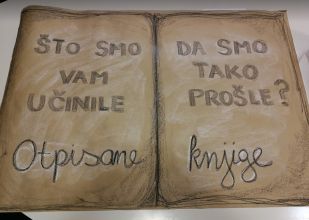 ŠTO SMO
VAM
UČINILE
Otpisane
DA SMO
TAKO
PROŠLE?
knjige